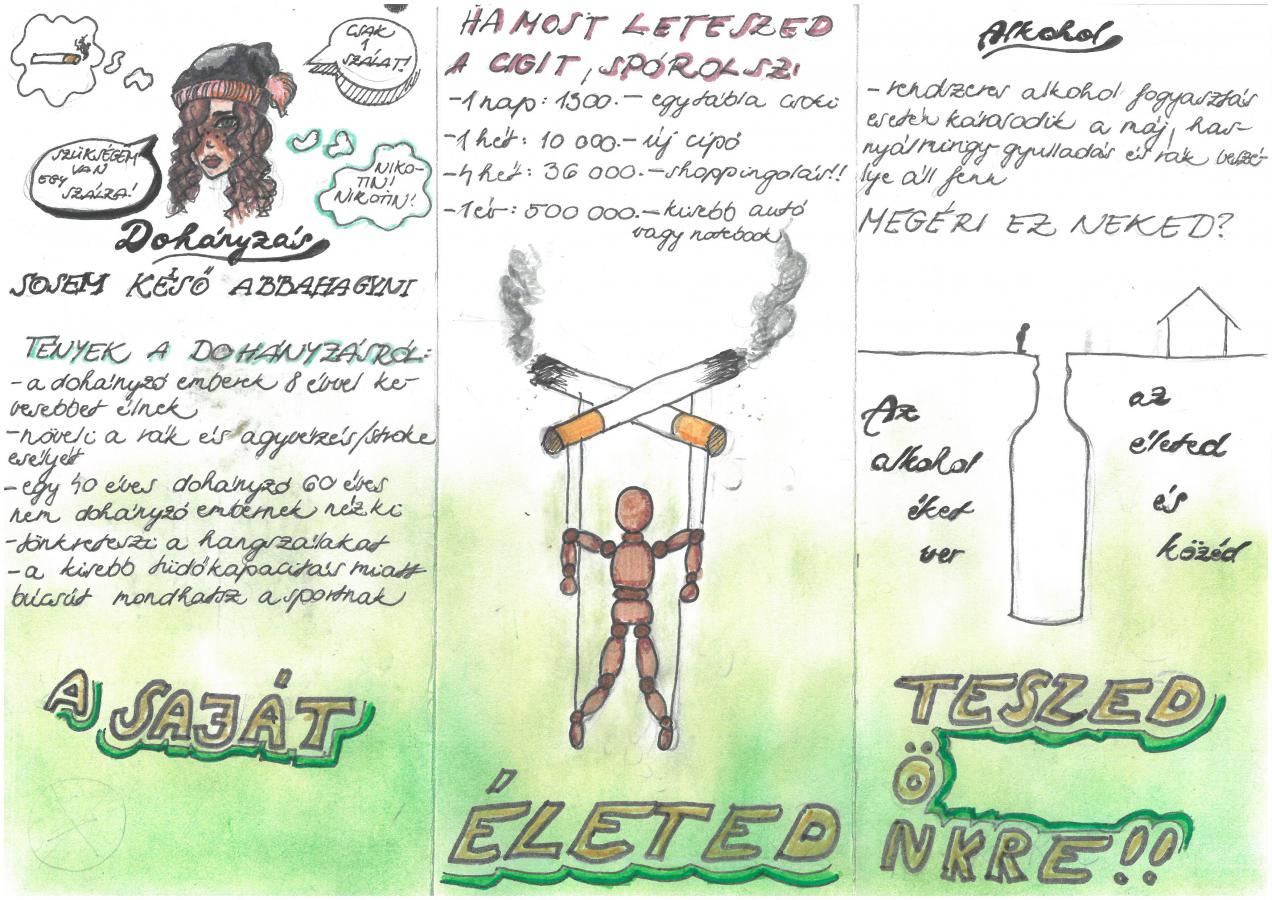 CSAK
1
SZÁLAT!
SZÜKSÉGEM
VAN
EGY
SZÁLRA!
NIKO-
TIN!
NIKOTIN!
Dohányzás
SOSEM KÉSŐ ABBAHAGYNI
TÉNYEK A DOHÁNYZÁSRÓL:
- a dohányzó emberek 8 évvel ke-
vesebbet élnek
- növeli a rák és agyvérzés/stroke
esélyét
- egy 40 éves dohányzó 60 éves
nem dohányzó embernek néz ki
- tönkreteszi a hangszálakat
- a kisebb tüdőkapacitás miatt
búcsút mondhatsz a sportnak
A SAJÁT
HA MOST LETESZED
A CIGIT, SPÓROLSZ:
- 1 nap: 1300.- egy tábla csoki
- 1 hét: 10 000.- új cipő
- 4 hét: 36 000.- shoppingolás!!
- 1 év: 500 000.- kisebb autó
vagy notebook
ÉLETED
Alkohol
- rendszeres alkohol fogyasztás
esetén károsodik a máj, has-
nyálmirigy gyulladás és rák veszé-
lye áll fenn
MEGÉRI EZ NEKED?
Az
alkohol
éket
ver
az
életed
és
közéd
TESZED
Ö
NKRE!!